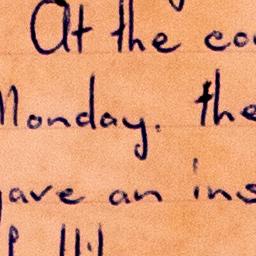 At the co
Monday. the
gave an ins